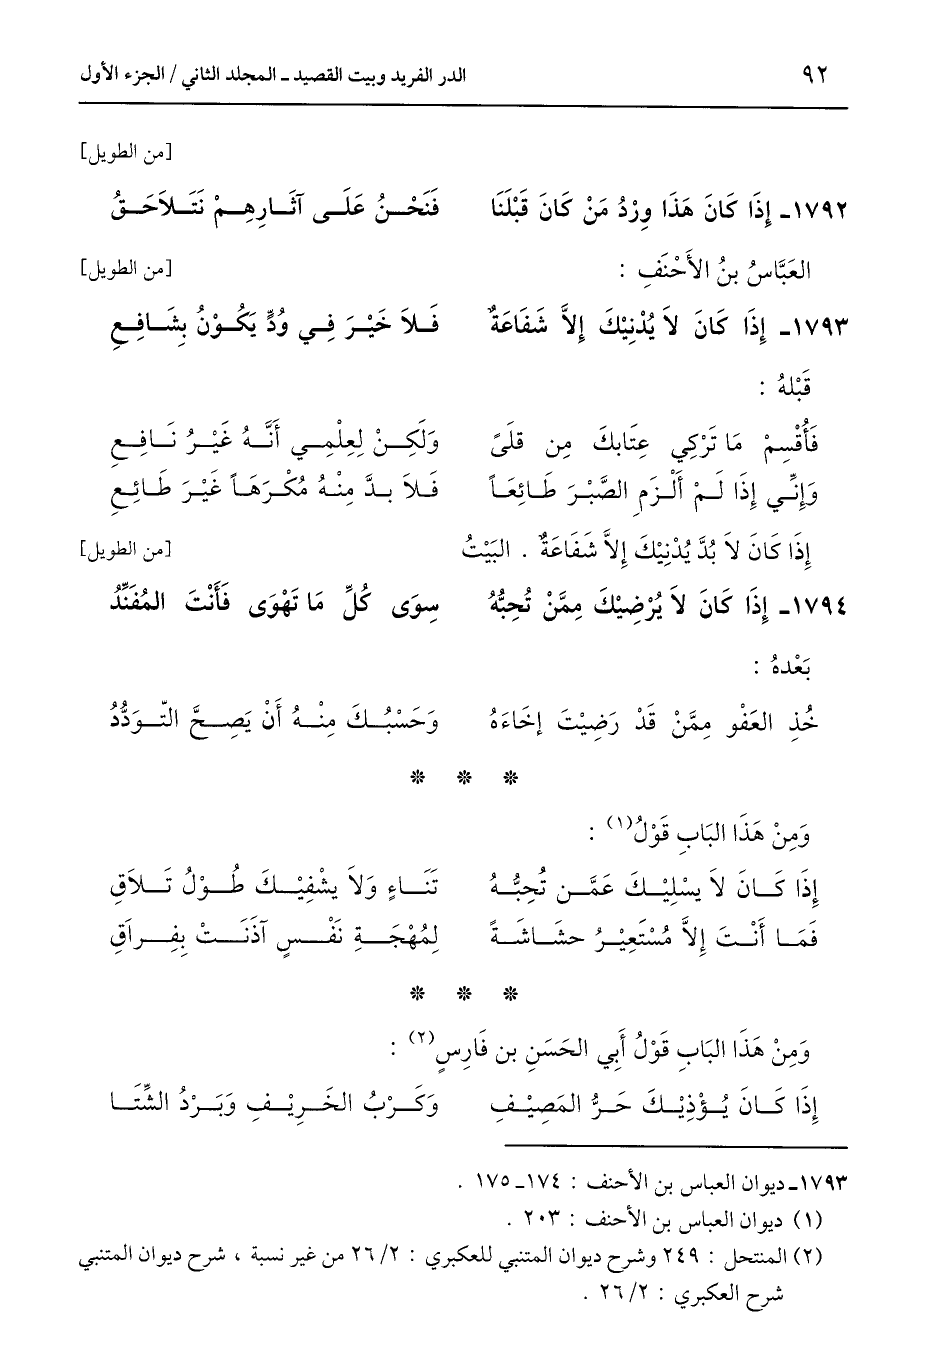 ٩٢ الدر الفريد وبيت القصيد ـ المجلد الثاني / الجزء الأول
[من الطويل]
١٧٩٢ـ إِذَا كَانَ هَذَا وِرْدُ مَنْ كَانَ قَبْلَنَا فَنَحْنُ عَلَى آثَارِهِمْ نَتَلاَحَقُ
العَبَّاسُ بنُ الأَحْنَفِ : [من الطويل]
١٧٩٣ـ إِذَا كَانَ لاَ يُدْنِيْكَ إِلاَّ شَفَاعَةٌ فَلاَ خَيْرَ فِي وُدٍّ يَكُوْنُ بِشَافِعِ
قَبْلهُ :
فَأُقْسِمُ مَا تَرْكِي عِتَابكَ مِن قلًى وَلَكِنْ لِعِلْمِي أَنَّهُ غَيْرُ نَافِعِ
وَإِنِّي إِذَا لَمْ أَلْزَمِ الصَّبْرَ طَائِعَاً فَلاَ بدَّ مِنْهُ مُكْرَهَاً غَيْرَ طَائِعِ
إِذَا كَانَ لاَ بُدَّ يُدْنِيْكَ إِلاَّ شَفَاعَةٌ . البَيْتُ [من الطويل]
١٧٩٤ـ إِذَا كَانَ لاَ يُرْضِيْكَ مِمَّنْ تُحِبُّهُ سِوَى كُلِّ مَا تَهْوَى فَأَنْتَ المُفَنَّدُ
بَعْدهُ :
خُذِ العَفْوِ مِمَّنْ قَدْ رَضِيْتَ إخَاءَهُ وَحَسْبُكَ مِنْهُ أَنْ يَصِحَّ التَّوَدُّدُ
* * *
وَمِنْ هَذَا البَابِ قَوْلُ(١) :
إِذَا كَانَ لاَ يسْلِيْكَ عَمَّن تُحِبُّهُ تَنَاءٍ وَلاَ يشْفِيْكَ طُوْلُ تَلاَقِ
فَمَا أَنْتَ إِلاَّ مُسْتَعِيْرُ حشَاشَةً لِمُهْجَةِ نَفْسٍ آذَنَتْ بِفِرَاقِ
* * *
وَمِنْ هَذَا البَابِ قَوْلُ أَبِي الحَسَنِ بن فَارِسٍ(٢) :
إِذَا كَانَ يُؤْذِيْكَ حَرُّ المَصِيْفِ وَكَرْبُ الخَرِيْفِ وَبَرْدُ الشِّتَا
١٧٩٣ـ ديوان العباس بن الأحنف : ١٧٤ـ ١٧٥ .
(١) ديوان العباس بن الأحنف : ٢٠٣ .
(٢) المنتحل : ٢٤٩ وشرح ديوان المتنبي للعكبري : ٢/ ٢٦ من غير نسبة ، شرح ديوان المتنبي
شرح العكبري : ٢/ ٢٦ .